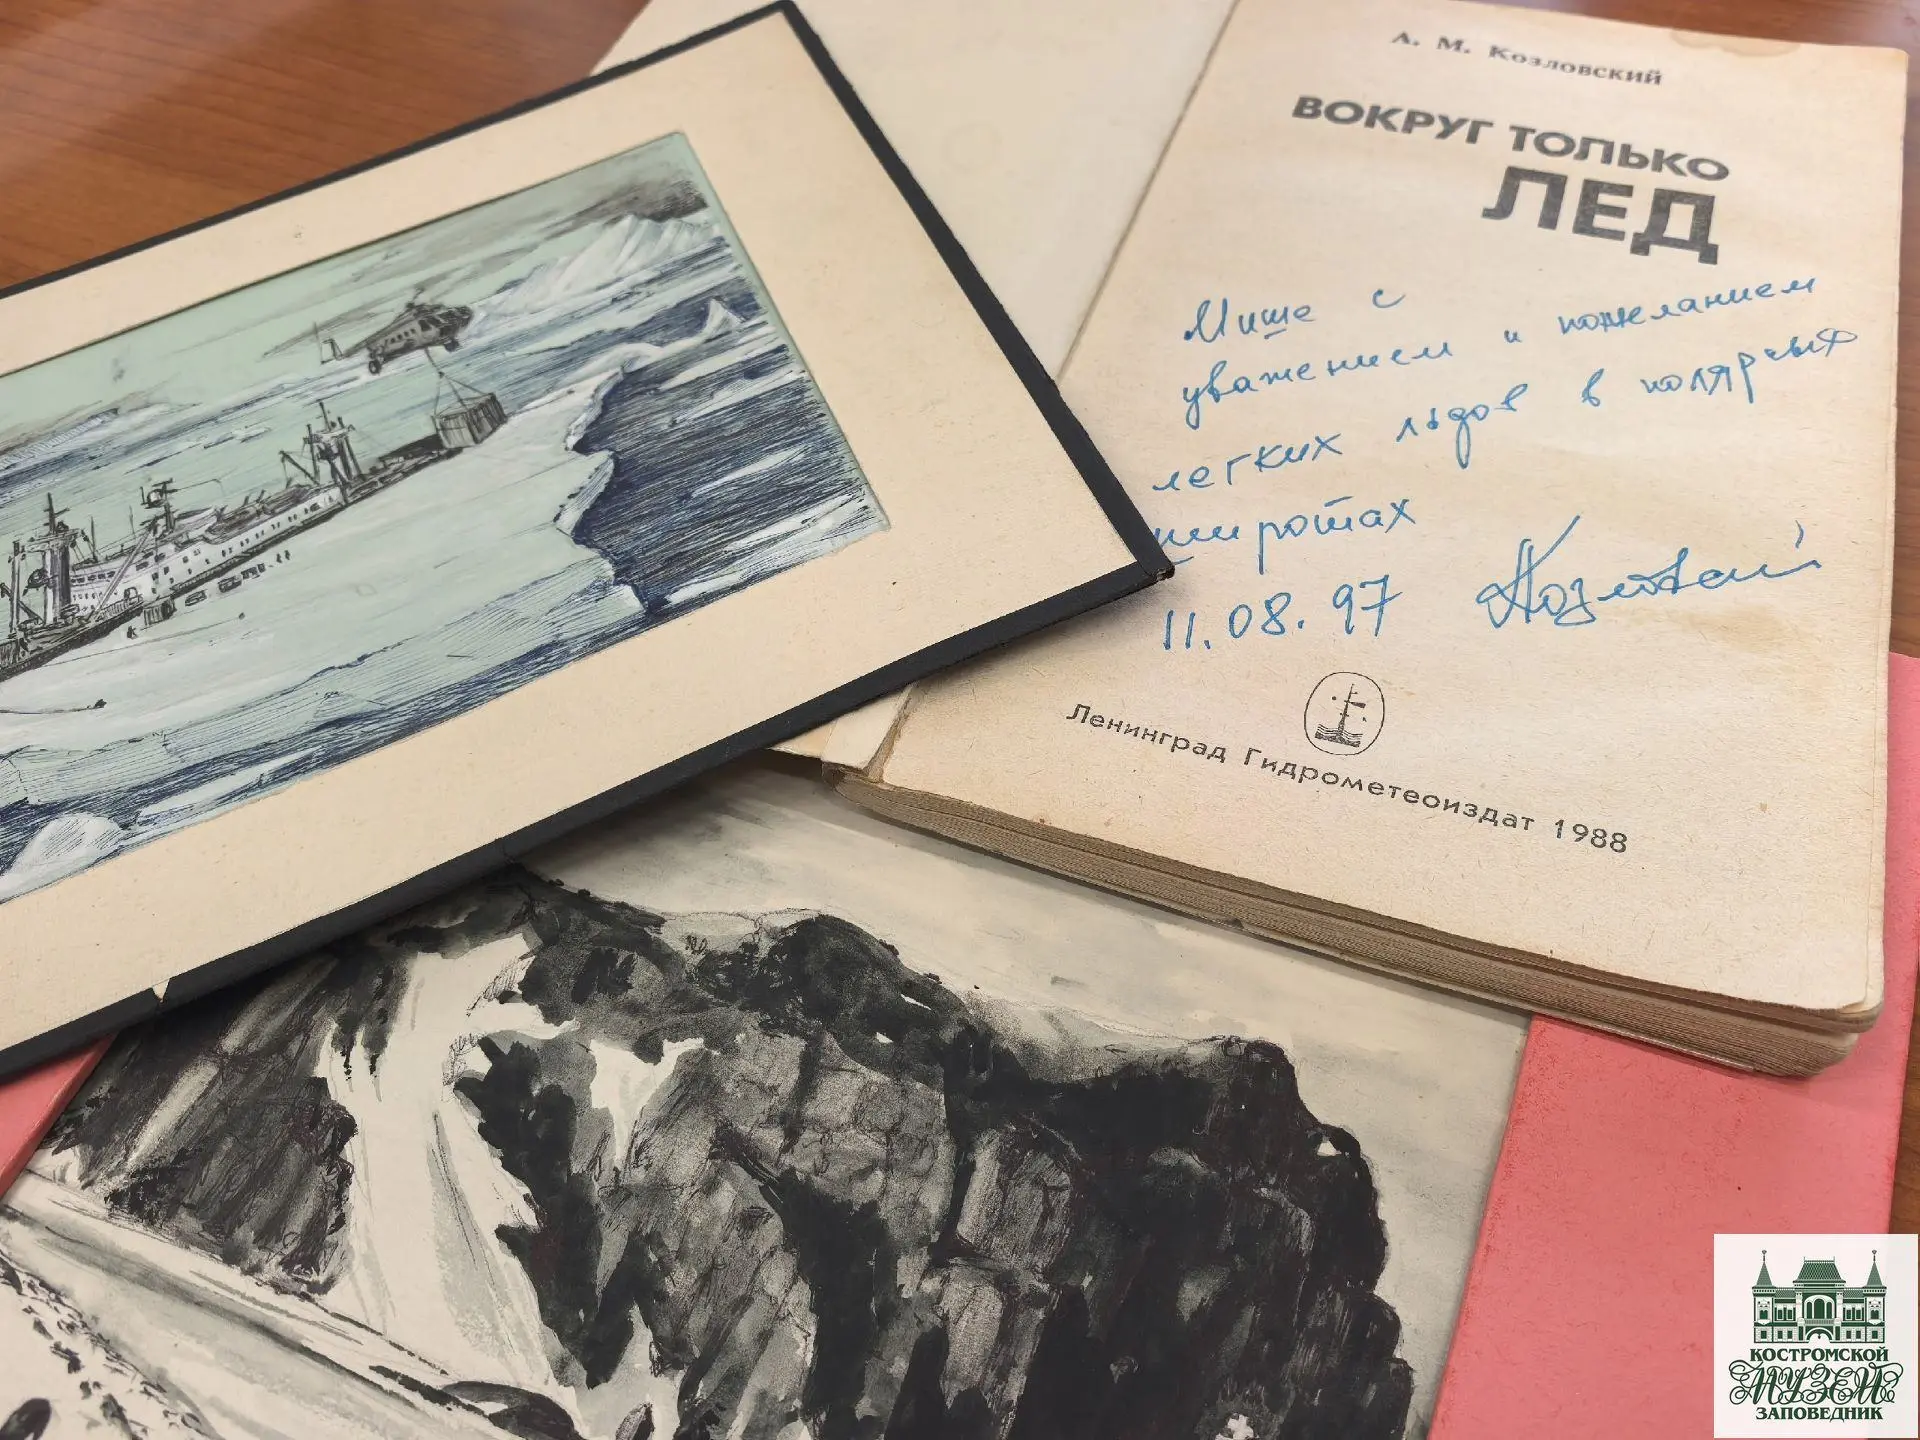 А. М. Козловский
ВОКРУГ ТОЛЬКО
ЛЕД
Мише с
уважением и пожеланием
легких льдов в полярных
широтах
11.08.97 Козловский
Ленинград Гидрометеоиздат 1988
КОСТРОМСКОЙ
МУЗЕЙ
ЗАПОВЕДНИК